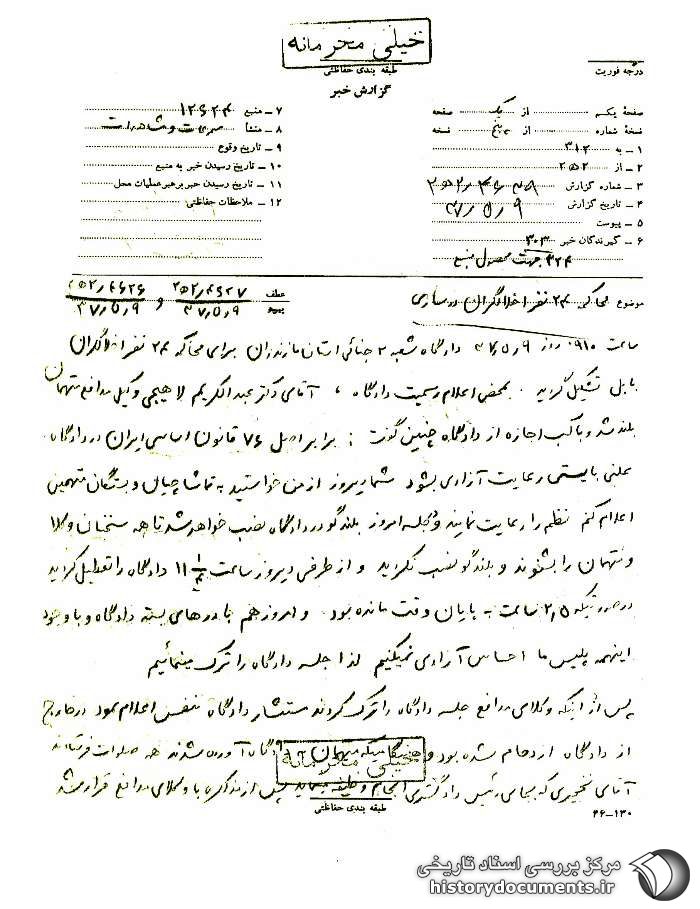 خیلی محرمانه
طبقه بندی حفاظتی
درجه فوریت
گزارش خبر
صفحه یک از یک صفحه
نسخه شماره از پنج نسخه
۱ – به ۳۱۲
۲ – از ۲۵۲
۳ – شماره گزارش
۴ – تاریخ گزارش ۳۷٫۵٫۹
۵ – پیوست
۶ – گیرندگان خبر ۳۰۳
۳۲۴ جهت
۷ – منبع ۱۲۶۲۴
۸ – منشأ و مشاهدات
۹ – تاریخ وقوع
۱۰ – تاریخ رسیدن خبر به منبع
۱۱ – تاریخ رسیدن خبر برهبر عملیات محل
۱۲ – ملاحظات حفاظتی
موضوع محاکمه ۲۴ نفر اخلالگران در ساری
عطف و
ساعت ۰۹۱۰ روز ۳۷٫۵٫۹ دادگاه شعبه ۲ جنائی استان مازندران برای محاکمه ۲۴ نفر اخلالگران
بابل تشکیل گردید . بمحض اعلام رسمیت دادگاه ، آقای دکتر عبدالکریم لاهیجی وکیل مدافع متهمان
بلند شد و با کسب اجازه از دادگاه چنین گفت : برابر اصل ۷۶ قانون اساسی ایران در دادگاه
علنی بایستی رعایت آزادی بشود شما دیروز از من خواستید به تماشاچیان و بستگان متهمین
اعلام کنم نظم را رعایت نمایند و جلسه امروز بلندگو در دادگاه نصب خواهد شد تا همه سخنان وکلا
و متهمان را بشنوند و بلندگو نصب نکردید و از طرفی دیروز ساعت ۱۱ دادگاه را تعطیل کردید
در صورتیکه ۲٫۵ ساعت به پایان وقت مانده بود . و امروز هم با درهای بسته دادگاه و با وجود
اینهمه پلیس ما احساس آزادی نمیکنیم لذا جلسه دادگاه را ترک مینمائیم
پس از اینکه وکلای مدافع جلسه دادگاه را ترک کردند مستشار دادگاه تنفس اعلام نمود در خارج
از دادگاه ازدحام شده بود و هنگامیکه متهمان دادگاه آورده شدند همه صلوات فرستادند
آقای که بجای رئیس دادگستری انجام وظیفه مینماید پس از مذاکره با وکلای مدافع قرار شد
خیلی محرمانه
طبقه بندی حفاظتی
۴۶–۱۳۰
مرکز بررسی اسناد تاریخی
historydocuments.ir